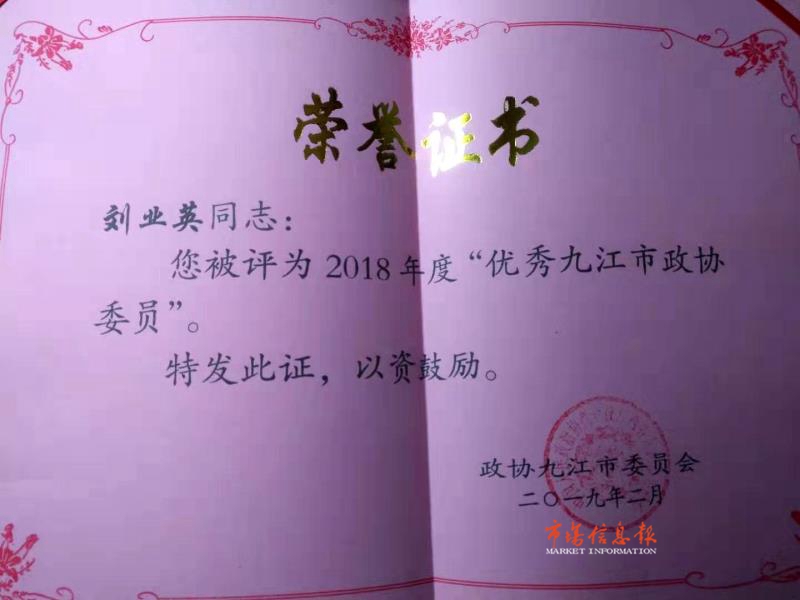 荣誉证书
刘业英同志：
您被评为 2018 年度“优秀九江市政协
委员”。
特发此证，以资鼓励。
政协九江市委员会
二〇一九年二月
市场信息报
MARKET INFORMATION